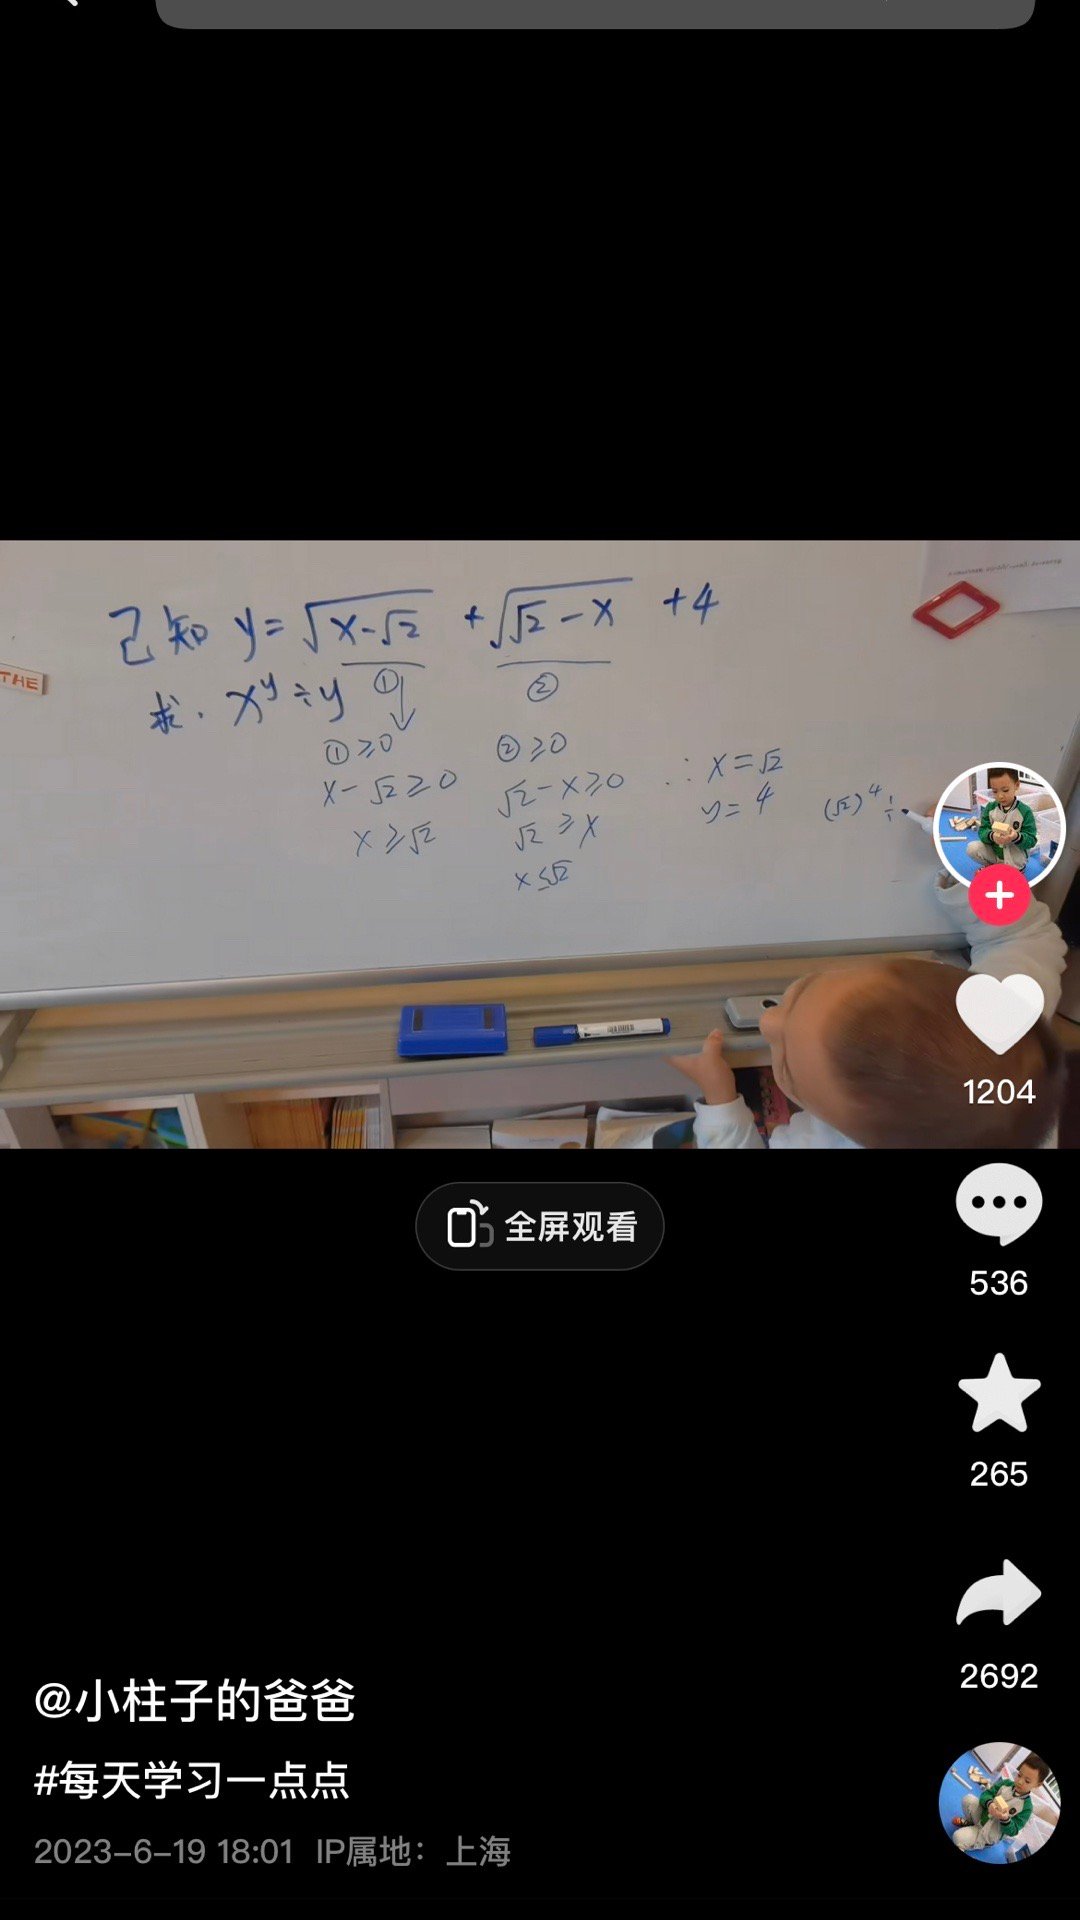 THE
已知 y=√(x-√2) +√(√2-x) +4
① ②
求. x^y÷y
①≥0 ②≥0
x-√2≥0 √2-x≥0 ∴ x=√2
x≥√2 √2≥x y=4 (√2)^4÷
x≤√2
1204
全屏观看
536
265
2692
@小柱子的爸爸
#每天学习一点点
2023-6-19 18:01 IP属地：上海